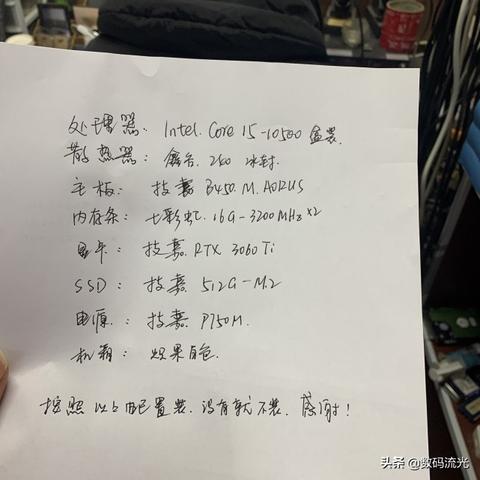 处理器: Intel. Core i5-10500 盒装.
散热器: 鑫谷. 240 冰封.
主板: 技嘉 B450.M.AORUS
内存条: 七彩虹. 16G-3200MHz×2
显卡: 技嘉 RTX 3060Ti
SSD: 技嘉 512G-M2
电源: 技嘉 P750M.
机箱: 白色.
按照以上配置装. 没有就不装. 感谢!
头条 @数码流光